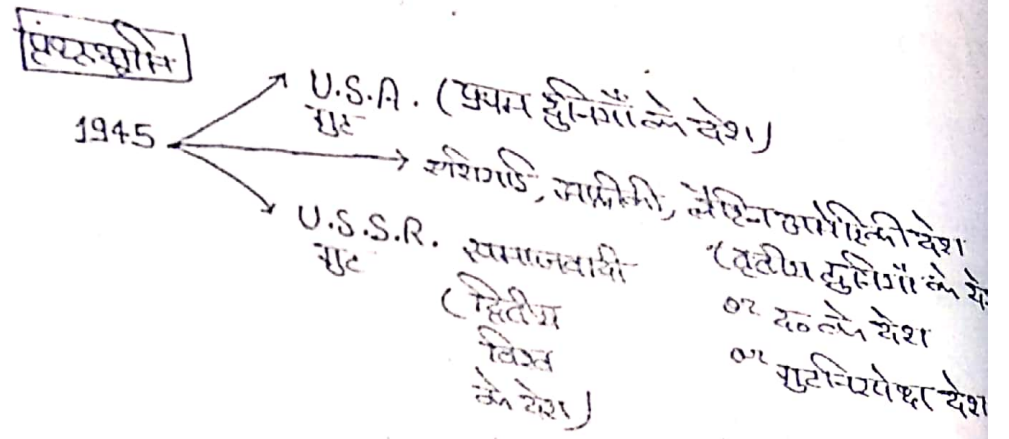 पृष्ठभूमि
1945
U.S.A. (प्रथम दुनियाँ के देश)
गुट
एशियाई, अफ्रीकी, लैटिन अमेरिकी देश
(तृतीय दुनियाँ के दे
or द० के देश
or गुटनिरपेक्ष देश
U.S.S.R. समाजवादी
गुट
(द्वितीय
विश्व
के देश)